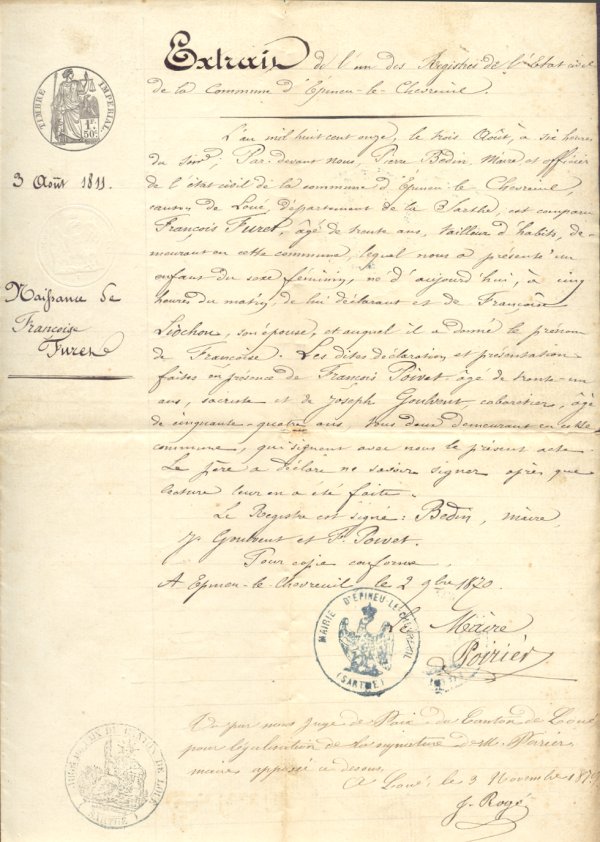 Extrait de l'un des Registres de l'Etat civil
de la Commune d'Épineu-le-Chevreuil.
TIMBRE IMPÉRIAL
1F.
50c.
3 Août 1811.
Naissance de
Françoise
Furet
L'an mil huit cent onze, le trois Août, à six heures
du soir, Par devant nous, Pierre Bedin, Maire et officier
de l'état civil de la commune d'Épineu-le-Chevreuil,
canton de Loué, département de la Sarthe, est comparu
François Furet, âgé de trente ans, tailleur d'habits, de-
meurant en cette commune, lequel nous a présenté un
enfant du sexe féminin, né d'aujourd'hui, à cinq
heures du matin, de lui déclarant et de Françoise
Liochon, son épouse, et auquel il a donné le prénom
de Françoise. Les dites déclaration et présentation
faites en présence de François Poivet, âgé de trente-un
ans, sacriste et de Joseph Gouvent, cabaretier, âgé
de cinquante-quatre ans, tous deux demeurant en cette
commune, qui signent avec nous le présent acte.
Le père a déclaré ne savoir signer après que
lecture leur en a été faite.
Le Registre est signé: Bedin, maire,
J. Gouvent et F. Poivet.
Pour copie conforme
A Epineu-le-Chevreuil le 2 9bre 1870.
Le Maire
Poirier
MAIRIE D'EPINEU-LE-CHEVREUIL
(SARTHE)
Vu par nous Juge de Paix du Canton de Loué
pour légalisation de la signature de M. Poirier
maire apposée ci dessus.
A Loué, le 3 Novembre 1870
J. Rogé
JUGE DE PAIX DU CANTON DE LOUÉ
(SARTHE)